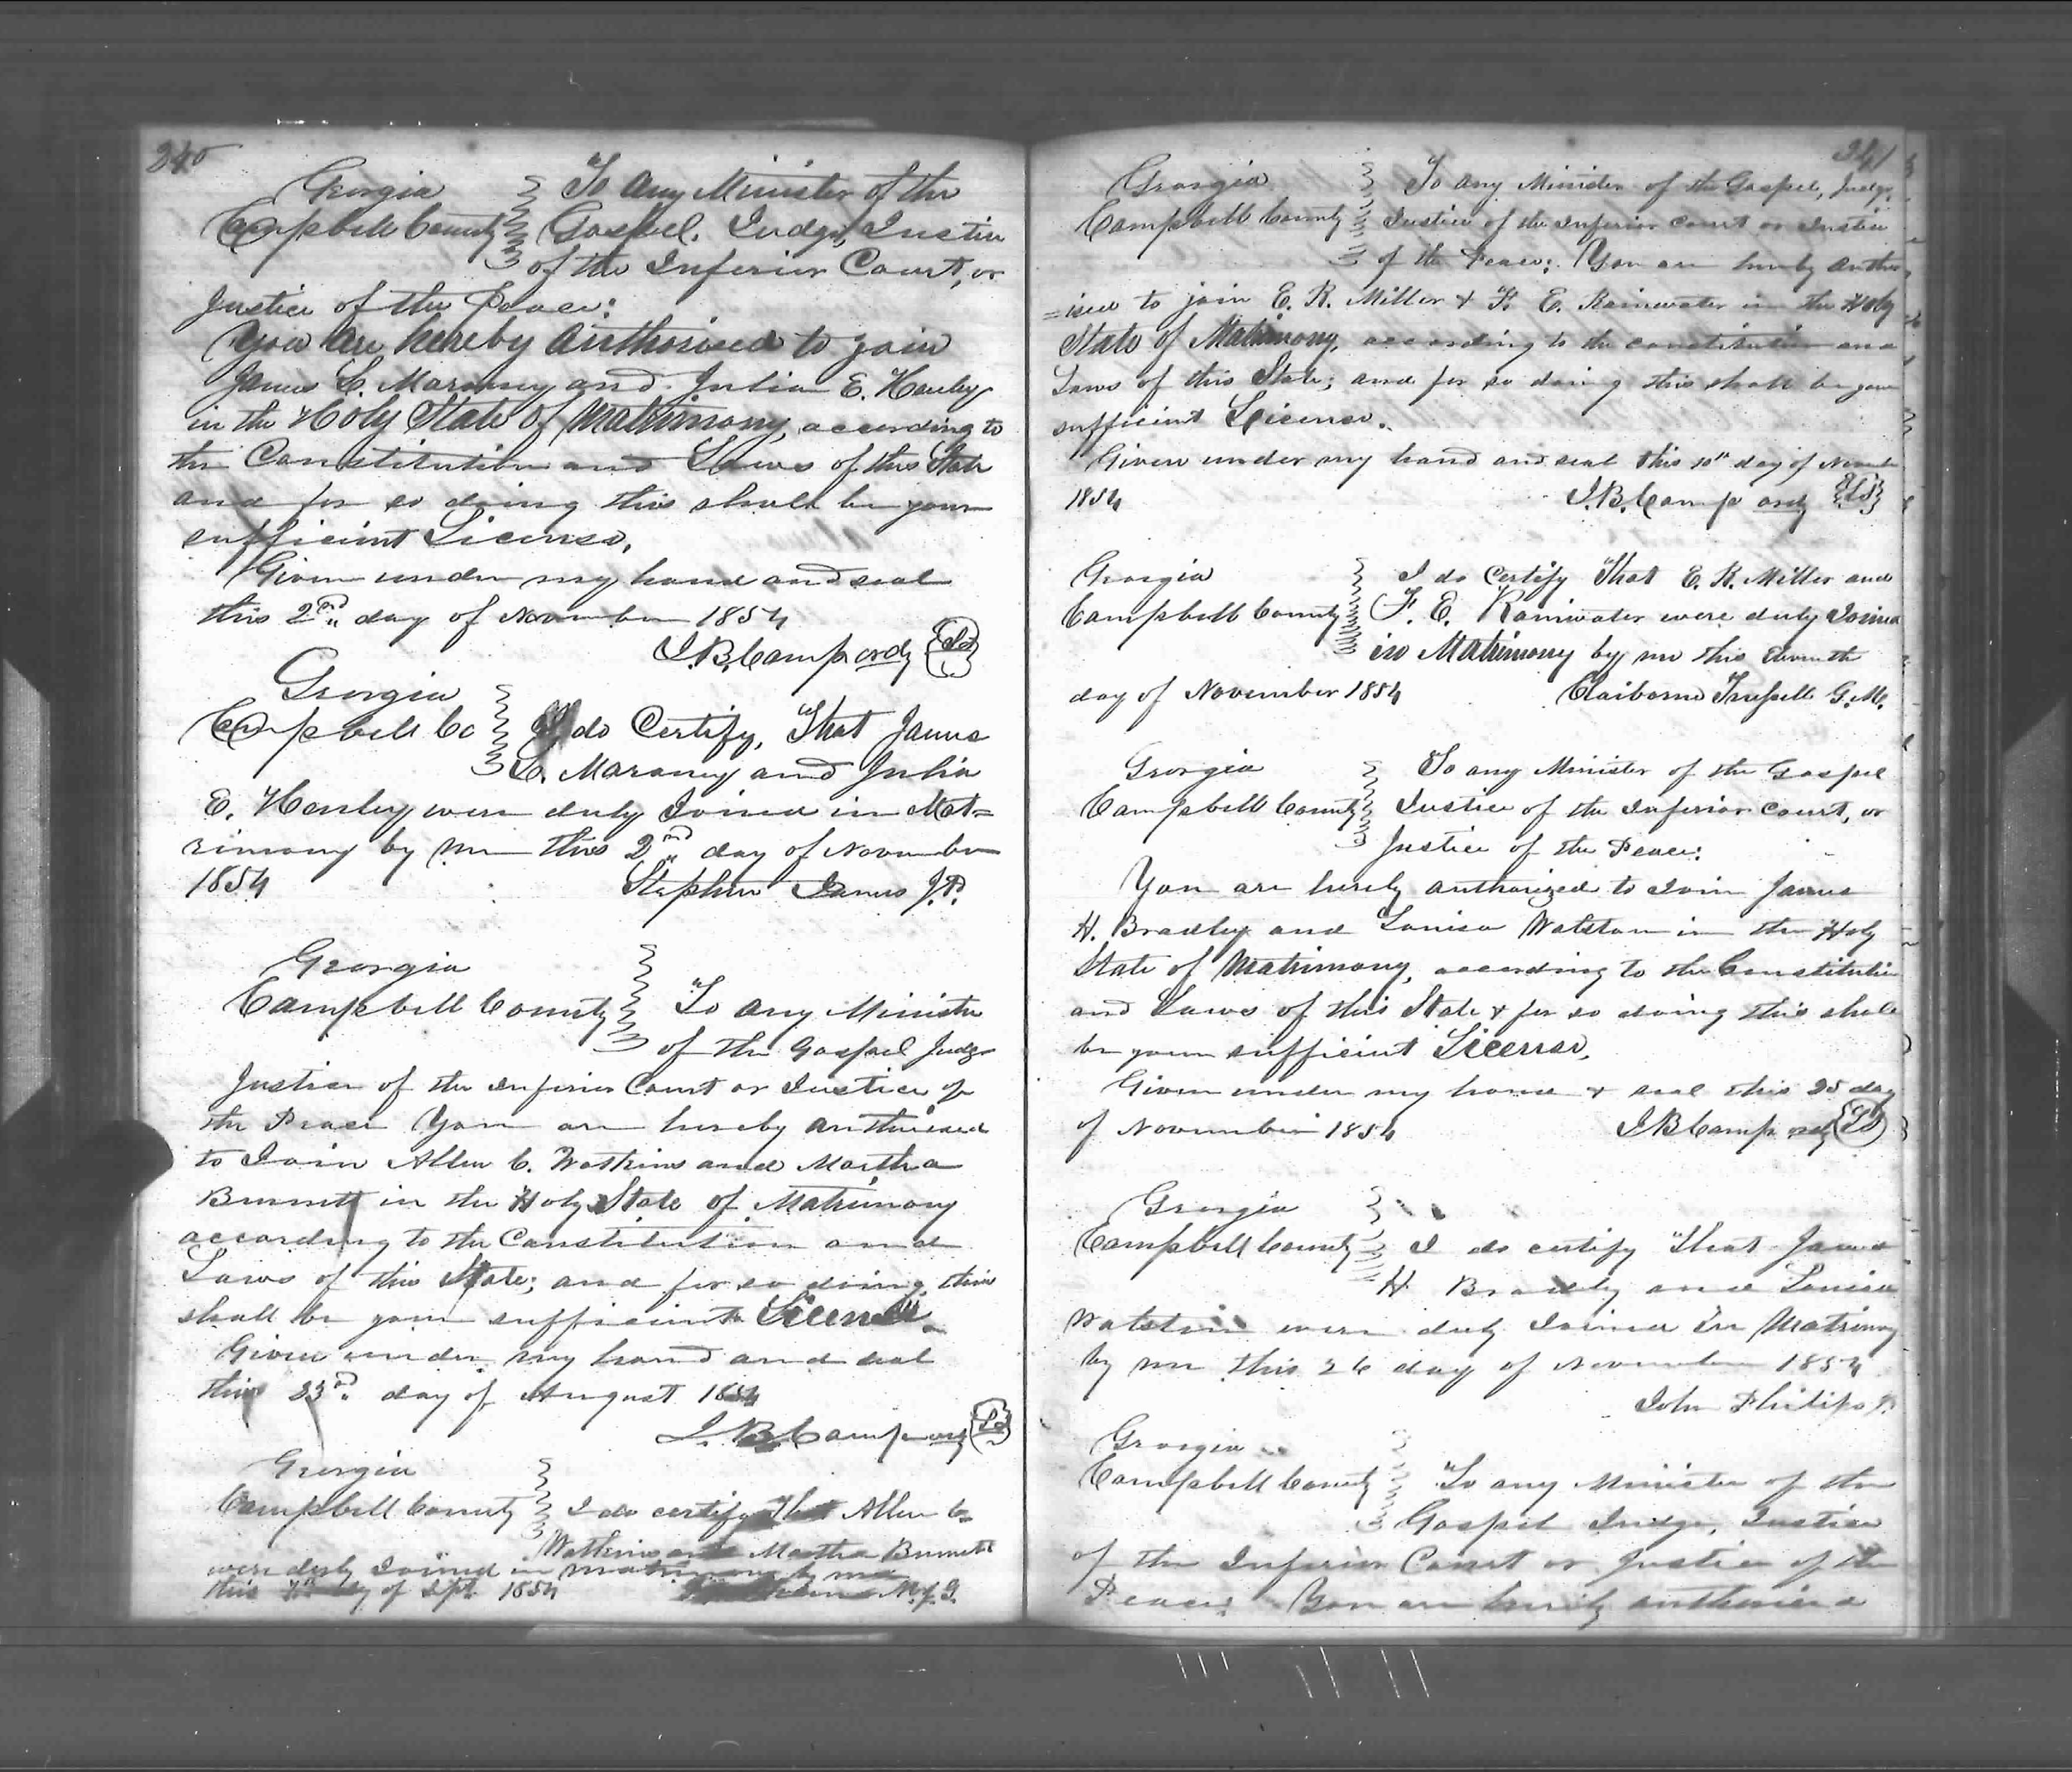 240
Georgia To any Minister of the
Campbell County Gospel, Judge, Justice
of the Inferior Court, or
Justice of the Peace:
You are hereby Authorised to join
James L. Maroney and Julia E. Henley
in the Holy State of Matrimony, according to
the Constitution and Laws of this State
and for so doing this shall be your
sufficient License.
Given under my hand and seal
this 2nd day of November 1854
J. B. Camp ordy LS
Georgia
Campbell Co I do Certify, That James
L. Maroney and Julia
E. Henley were duly Joined in Mat=
rimony by me this 2nd day of November
1854 Stephen James J.P.
Georgia
Campbell County To any Minister
of the Gospel Judge
Justice of the Inferior Court or Justice of
the Peace You are hereby authorised
to Join Allen C. Watkins and Martha
Burnett in the Holy State of Matrimony
according to the Constitution and
Laws of this State; and for so doing, this
shall be your sufficient License.
Given under my hand and seal
this 23rd day of August 1854
J. B. Camp ordy LS
Georgia
Campbell County I do certify that Allen C.
Watkins and Martha Burnett
were duly Joined in matrimony by me
this day of Sept. 1854 M. of G.
241
Georgia To any Minister of the Gospel, Judge,
Campbell County Justice of the Inferior Court or Justice
of the Peace: You are hereby author
=ised to join E. R. Miller & F. E. Rainwater in the Holy
State of Matrimony, according to the constitution and
Laws of this State; and for so doing this shall be your
sufficient License.
Given under my hand and seal this 10th day of Novembr
1854 J. B. Camp ordy LS
Georgia I do Certify That E. R. Miller and
Campbell County F. E. Rainwater were duly Joined
in Matrimony by me this Eleventh
day of November 1854 Claiborne Trussell G. M.
Georgia To any Minister of the Gospel
Campbell County Justice of the Inferior Court, or
Justice of the Peace:
You are hereby authorized to Join James
H. Bradley and Louisa Watston in the Holy
State of Matrimony, according to the Constitution
and Laws of this State & for so doing this shall
be your sufficient License.
Given under my hand & seal this 25 day
of November 1854 J B Camp ordy LS
Georgia
Campbell County I do certify That James
H. Bradley and Louisa
Watston were duly Joined in Matrimony
by me this 26 day of November 1854
John Philips J.
Georgia
Campbell County To any Minister of the
Gospel Judge, Justice
of the Inferior Court or Justice of the
Peace: You are hereby authorised